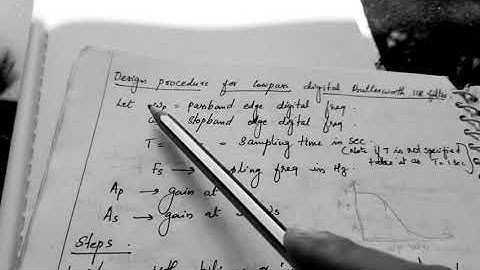 Design procedure for lowpass digital Butterworth IIR filter
Let ωp = passband edge digital freq.
stopband edge digital freq.
T = = Sampling time in sec.
(Note if T is not specified
take it as T = 1 sec)
Fs → sampling freq in Hz.
Ap → gain at
As → gain at
Steps.